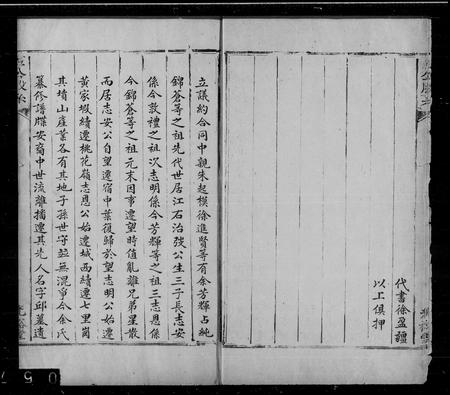 代書徐盈疆
以上俱押
立議約合同中親朱起模徐進賢等有余芳輝占純
錦蒼等之祖先代世居江石治強公生三子長志安
係今敦禮之祖次志明係今芳輝等之祖三志恩係
今錦蒼等之祖元末因事遷望時值亂離兄弟星散
而居志安公自望遷宿中葉復歸於望志明公始遷
黃家塅續遷桃花嶺志恩公始遷城西續遷七里崗
其墳山產業各有其地子孫世守並無混淨今余氏
纂修譜牒安裔中世流離播遷其先人名字邱墓遺
0 5 7